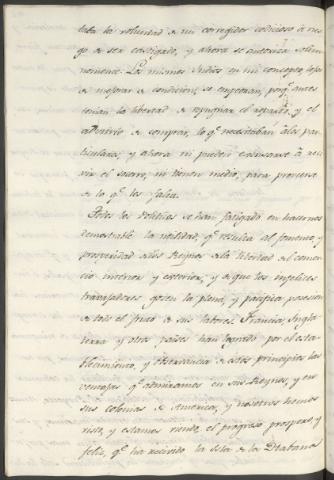 taba la voluntad de un corregidor codicioso à ries
go de ser castigado, y ahora se autoriza solem
nemente. Los mismos Indios en mi concepto, lejos
de mejorar de condicion, se empeoran, porq.e antes
tenian la libertad de repugnar el reparto, y el
advitrio de comprar, lo q.e necesitaban à los par
ticulares, y ahora ni pueden escusarse à reci
vir el socorro, ni tienen medio, para proveerse
de lo q.e les falta.
Todos los Politicos se han fatigado en hacernos
demostrable la utilidad, q.e resulta al fomento, y
prosperidad de los Reynos de la libertad del comer
cio interior, y exterior, y de que los infelices
trabajadores gozen la plena, y pacifica posesion
de todo el fruto de sus labores. Francia, Ingla
tierra y otros paises han logrado por el esta
blecimiento, y observancia de estos principios las
ventajas q.e admiramos en sus Reynos, y en
sus colonias de America, y nosotros hemos
visto, y estamos viendo, el progreso prospero, y
feliz, q.e ha recivido la Isla de la Habana